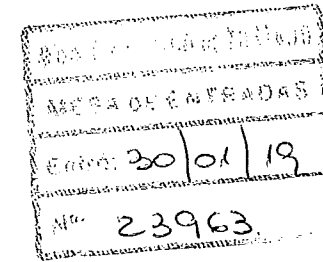 MESA DE ENTRADAS
Entró: 30 | 01 | 19
Nº 23963.